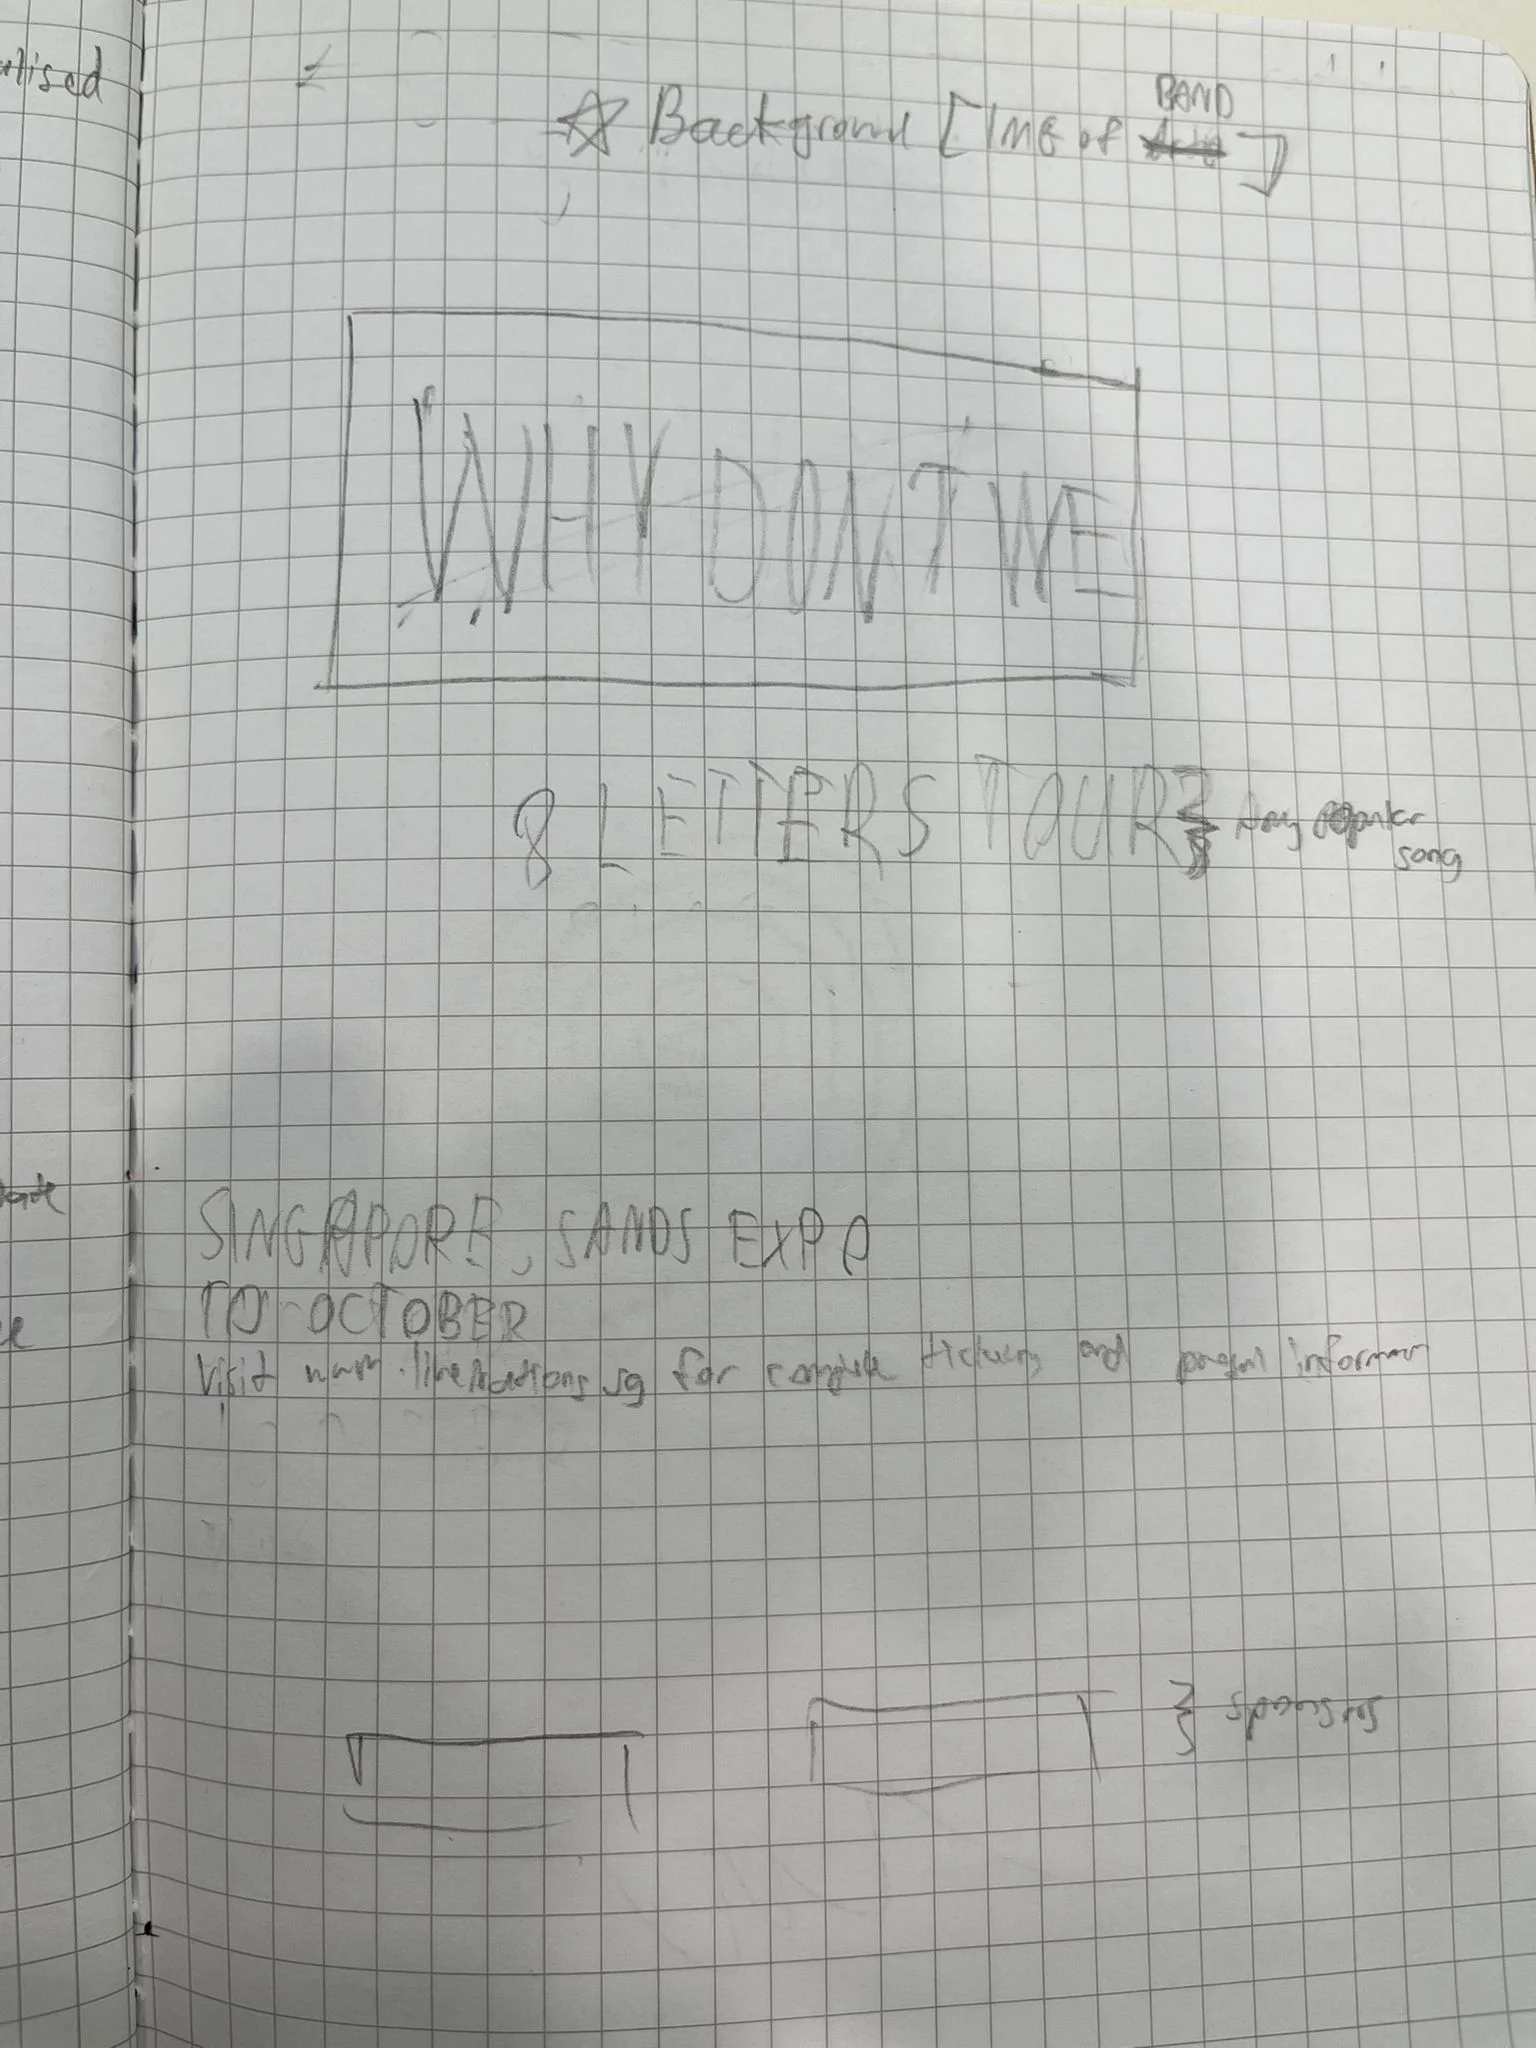 alised
BAND
Background [IMG of ]
WHY DON'T WE
8 LETTERS TOUR } Any popular
song
SINGAPORE, SANDS EXPO
10 OCTOBER
Visit www.livenations.sg for complete ticketing and program
} sponsros